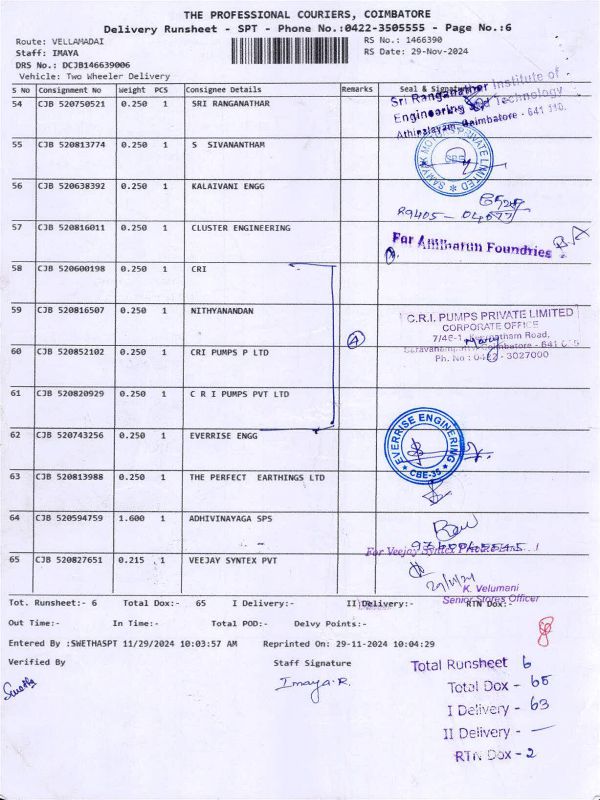 THE PROFESSIONAL COURIERS, COIMBATORE
Delivery Runsheet - SPT - Phone No.:0422-3505555 - Page No.:6
Route: VELLAMADAI RS No.: 1466390
Staff: IMAYA RS Date: 29-Nov-2024
DRS No.: DCJB146639006
Vehicle: Two Wheeler Delivery
S No Consignment No Weight PCS Consignee Details Remarks Seal & Signature
54 CJB 520750521 0.250 1 SRI RANGANATHAR
Sri Ranganathar Institute of
Engineering and Technology
Athipalayam, Coimbatore - 641 110.
55 CJB 520813774 0.250 1 S SIVANANTHAM
PRIVATE LIMITED
56 CJB 520638392 0.250 1 KALAIVANI ENGG
57 CJB 520816011 0.250 1 CLUSTER ENGINEERING
For Foundries
58 CJB 520600198 0.250 1 CRI
59 CJB 520816507 0.250 1 NITHYANANDAN
C.R.I. PUMPS PRIVATE LIMITED
CORPORATE OFFICE
Road,
Ph. No : 0422 - 3027000
A
60 CJB 520852102 0.250 1 CRI PUMPS P LTD
61 CJB 520820929 0.250 1 C R I PUMPS PVT LTD
62 CJB 520743256 0.250 1 EVERRISE ENGG
EVERRISE ENGINEERING
CBE-35
63 CJB 520813988 0.250 1 THE PERFECT EARTHINGS LTD
64 CJB 520594759 1.600 1 ADHIVINAYAGA SPS
65 CJB 520827651 0.215 1 VEEJAY SYNTEX PVT
For Veejay Syntex
K. Velumani
Senior Stores Officer
Tot. Runsheet:- 6 Total Dox:- 65 I Delivery:- II Delivery:- RTN Dox:-
Out Time:- In Time:- Total POD:- Delvy Points:-
Entered By :SWETHASPT 11/29/2024 10:03:57 AM Reprinted On: 29-11-2024 10:04:29
Verified By Staff Signature
Imaya.R.
Total Runsheet 6
Total Dox - 65
I Delivery - 63
II Delivery - —
RTN Dox - 2